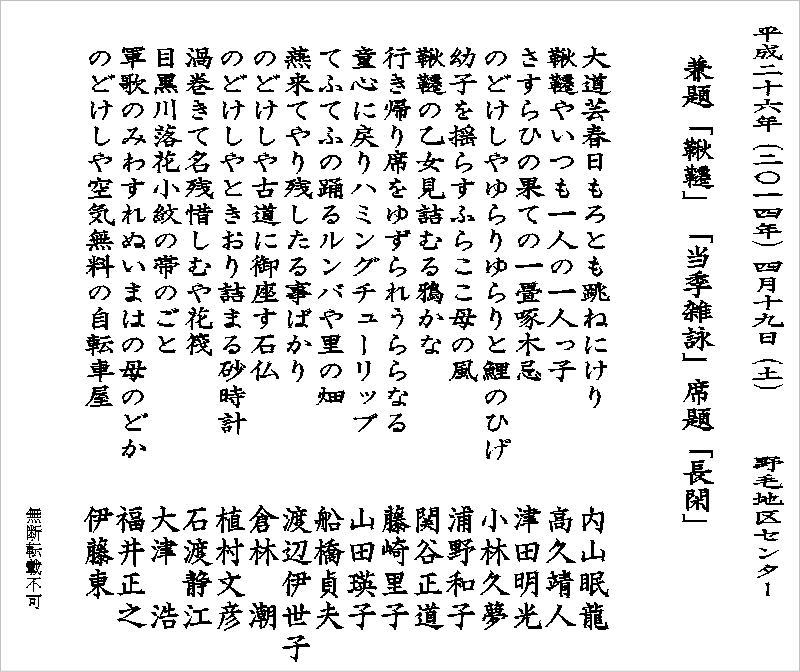 平成二十六年(二〇一四年)四月十九日(土) 野毛地区センター
兼題「鞦韆」「当季雑詠」席題「長閑」
大道芸春日もろとも跳ねにけり 内山眠龍
鞦韆やいつも一人の一人っ子 高久靖人
さすらひの果ての一畳啄木忌 津田明光
のどけしやゆらりゆらりと鯉のひげ 小林久夢
幼子を揺らすふらここ母の風 浦野和子
鞦韆の乙女見詰むる鴉かな 関谷正道
行き帰り席をゆずられうららなる 藤崎里子
童心に戻りハミングチューリップ 山田瑛子
てふてふの踊るルンバや里の畑 船橋貞夫
燕来てやり残したる事ばかり 渡辺伊世子
のどけしや古道に御座す石仏 倉林 潮
のどけしやときおり詰まる砂時計 植村文彦
渦巻きて名残惜しむや花筏 石渡静江
目黒川落花小紋の帯のごと 大津 浩
軍歌のみわすれぬいまはの母のどか 福井正之
のどけしや空気無料の自転車屋 伊藤東
無断転載不可